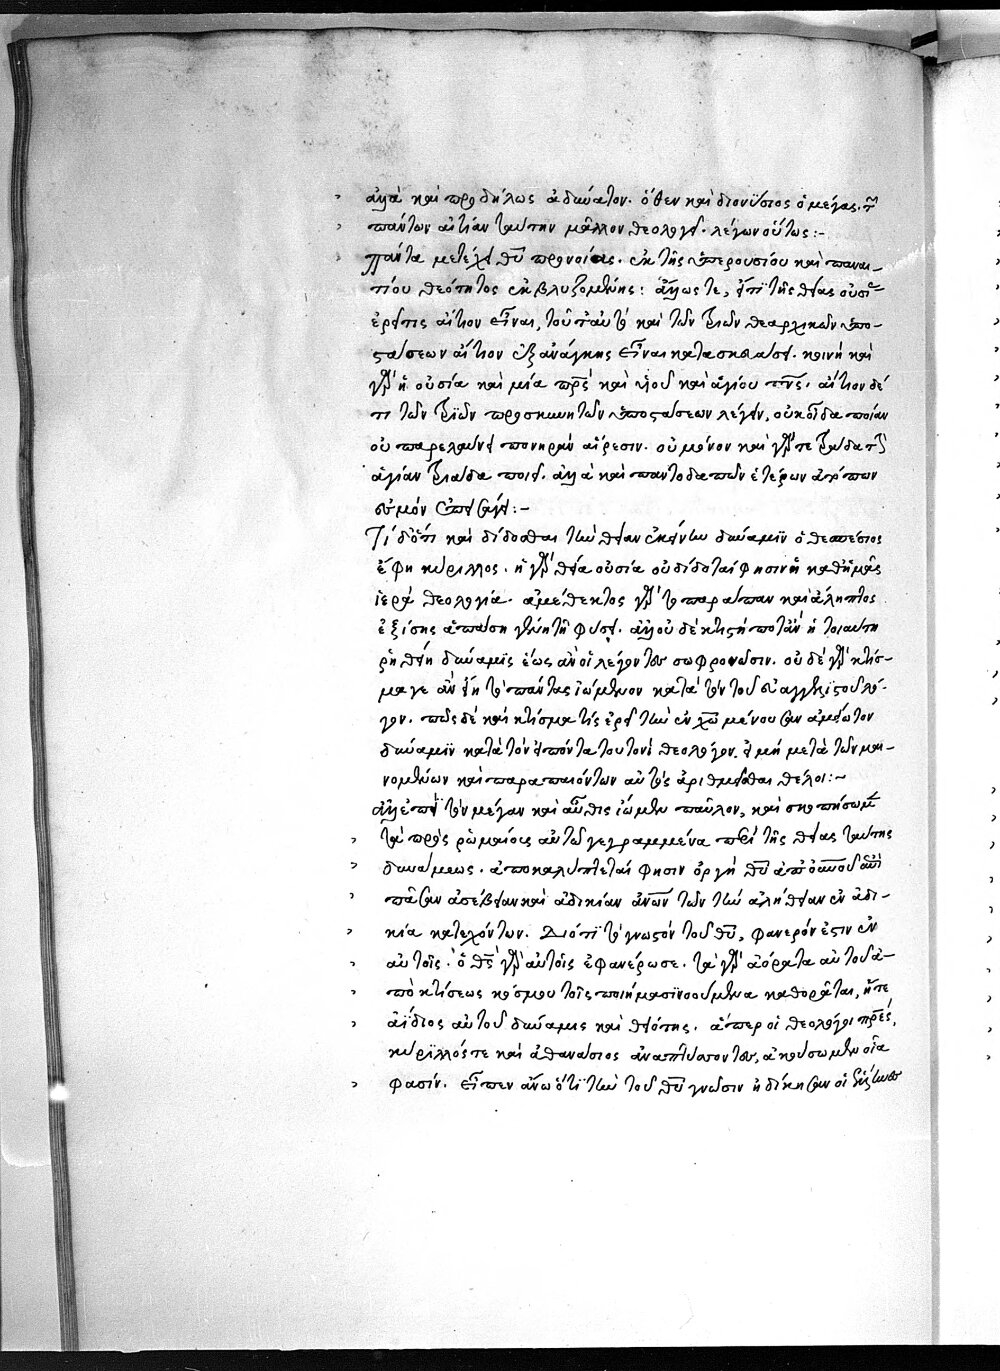 ἀλλὰ καὶ προδήλως ἀδύνατον. ὅθεν καὶ διονύσιος ὁ μέγας. τ(ῶν)
πάντων αἰτίαν ταύτην μᾶλλον θεολογεῖ. λέγων οὕτως:-
πάντα μετέχει θυ προνοίας. ἐκ τῆς ὑπερουσίου καὶ παναι-
τίου θεότητος ἐκβλυζομένης: ἄλλως τε, ἐπὶ τῆς θείας οὐσί(ας)
αἴτιον εἶναι, τοῦτ' αὐτὸ καὶ τῶν τριῶν θεαρχικῶν ὑπο-
στάσεων αἴτιον ἐξανάγκης εἶναι κατασκευάσει. κοινὴ καὶ
γὰρ ἡ οὐσία καὶ μία πρς καὶ υἱοῦ καὶ ἁγίου πνς. αἴτιον δέ
τι τῶν τριῶν προσκυνητῶν ὑποστάσεων λέγειν, οὐκ οἶδα ποίαν
οὐ παρελαύνει πονηρὰν αἵρεσιν. οὐ μόνον καὶ γὰρ τετράδα τὴν
ἁγίαν τριάδα ποιεῖ. ἀλλὰ καὶ παντοδαπῶν ἑτέρων ἀτόπων
ἐπεισάγει:-
Τί δ' ὅτι καὶ δίδοσθαι τὴν θείαν ἐκείνην δύναμιν ὁ θεσπέσιος
ἔφη κύριλλος. ἡ γὰρ θεία οὐσία οὐ δίδοταί φησιν ἡ καθημᾶς
ἱερὰ θεολογία. ἀμέθεκτος γὰρ τὸ παράπαν καὶ ἄληπτος
ἐξίσης ἁπάση γενητῆ φύσει. ἀλλ' οὐδὲ κτιστή ποτ' ἂν ἡ τοιαύτη
ῥηθείη δύναμις ἕως ἂν οἱ λέγοντες σωφρονῶσιν. οὐδὲ γὰρ κτίσ-
μα γε ἂν εἴη τὸ πάντας ἰώμενον κατὰ τὴν τοῦ εὐαγγελιστοῦ λό-
γον. πῶς δὲ καὶ κτίσμα τίς ἐρεῖ τὴν ἐν χω μένουσαν ἀμείωτον
δύναμιν κατὰ τὸν εἰπόντα τουτονὶ θεολόγον. εἰ μὴ μετὰ τῶν μαι-
νομένων καὶ παραπαιόντων αὐτὸς ἀριθμεῖσθαι θέλοι:-
ἀλλ' ἐπὶ τὸν μέγαν καὶ αὖθις ἴωμεν παῦλον, καὶ σκοπήσωμ(εν)
τὰ πρὸς ῥωμαίους αὐτῶ γεγραμμένα περὶ τῆς θείας ταύτης
δυνάμεως. ἀποκαλύπτεταί φησιν ὀργὴ θυ ἀπ' οὐνου ἐπὶ
πᾶσαν ἀσέβειαν καὶ ἀδικίαν ἀνων τῶν τὴν ἀλήθειαν ἐν ἀδι-
κία κατεχόντων. Διότι τὸ γνωστὸν τοῦ θυ, φανερόν ἐστιν ἐν
αὐτοῖς. ὁ θς γὰρ αὐτοῖς ἐφανέρωσε. τὰ γὰρ ἀόρατα αὐτοῦ ἀ-
πὸ κτίσεως κόσμου τοῖς ποιήμασι νοούμενα καθορᾶται, ἥτε
ἀΐδιος αὐτοῦ δύναμις καὶ θειότης. ἅπερ οἱ θεολόγοι πρες,
κύριλλός τε καὶ ἀθανάσιος ἀναπτύσσοντες, ἀκούσωμεν οἷα
φασίν. εἶπεν ἄνω ὅτι τὴν τοῦ θυ γνῶσιν ἠδίκησαν οἱ